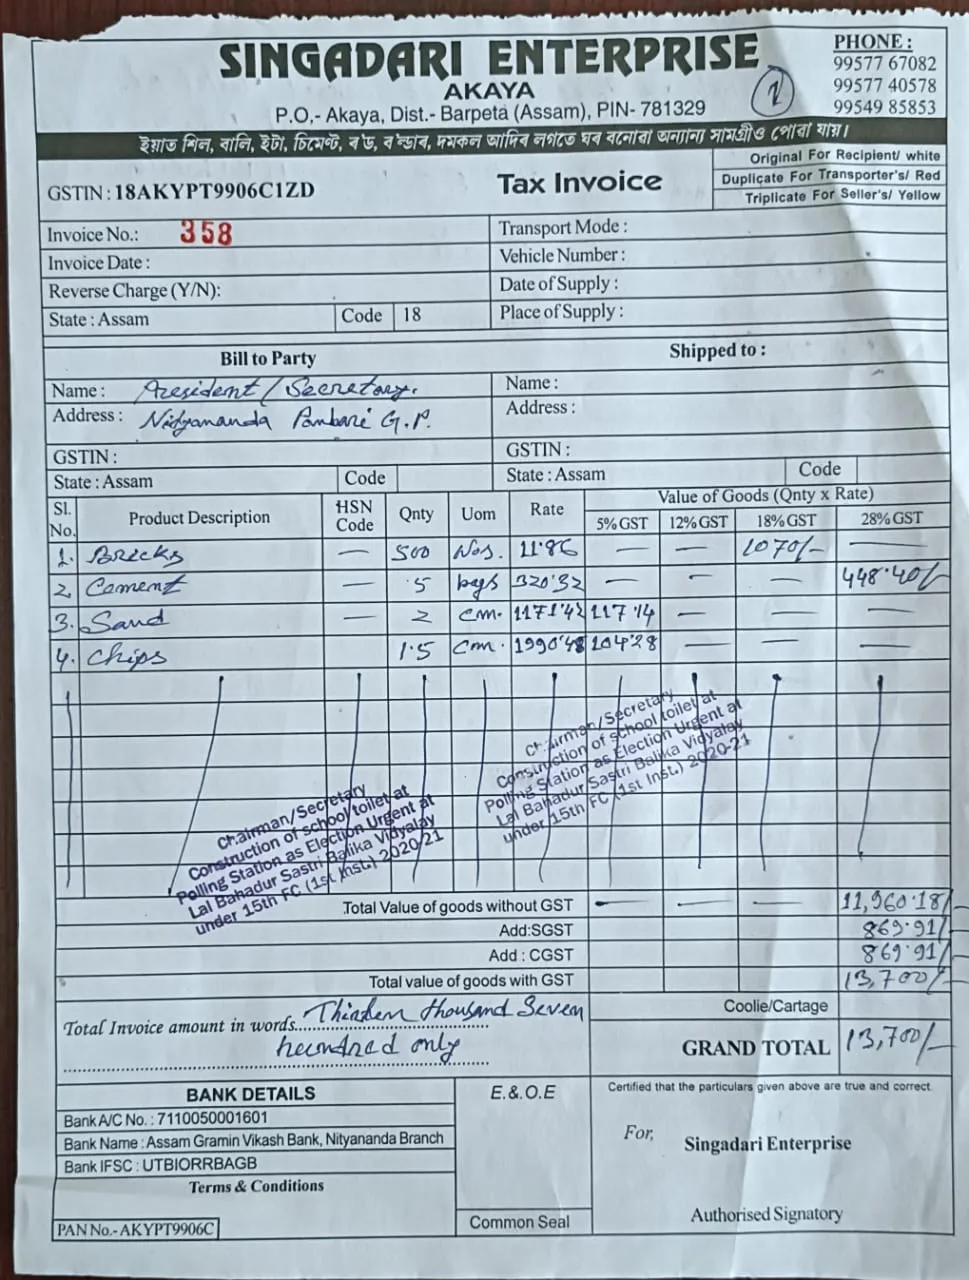 SINGADARI ENTERPRISE
AKAYA
P.O,- Akaya, Dist.- Barpeta (Assam), PIN- 781329
2
PHONE :
99577 67082
99577 40578
99549 85853
ইয়াত শিল, বালি, ইটা, চিমেন্ট, ৰড, ৰ'ন্ডাৰ, দমকল আদিৰ লগতে ঘৰ বনোৱা অন্যান্য সামগ্ৰীও পোৱা যায়।
GSTIN : 18AKYPT9906C1ZD
Tax Invoice
Original For Recipient/ white
Duplicate For Transporter's/ Red
Triplicate For Seller's/ Yellow
Invoice No.: 358
Transport Mode :
Invoice Date :
Vehicle Number :
Reverse Charge (Y/N):
Date of Supply :
State : Assam Code 18
Place of Supply :
Bill to Party
Shipped to :
Name : President/Secretary.
Name :
Address : Nidyananda Pambari G.P.
Address :
GSTIN :
GSTIN :
State : Assam Code
State : Assam Code
Sl. No. Product Description HSN Code Qnty Uom Rate Value of Goods (Qnty x Rate)
5% GST 12% GST 18% GST 28% GST
1. Bricks — 500 Nos. 11.86 — — 1070/- —
2. Cement — 5 bags 320.32 — — — 448.40/-
3. Sand — 2 cm. 1171.42 117.14 — — —
4. Chips 1.5 cm. 1990.48 104.28 — — —
Chairman/Secretary
Construction of school toilet at
Polling Station as Election Urgent at
Lal Bahadur Sastri Balika Vidyalay
under 15th FC (1st Inst.) 2020-21
Chairman/Secretary
Construction of school toilet at
Polling Station as Election Urgent at
Lal Bahadur Sastri Balika Vidyalay
under 15th FC (1st Inst.) 2020/21
Total Value of goods without GST — — — 11,960.18/-
Add:SGST 869.91/-
Add : CGST 869.91/-
Total value of goods with GST 13,700/-
Total Invoice amount in words Thirdeen thousand Seven
hundred only
Coolie/Cartage
GRAND TOTAL 13,700/-
BANK DETAILS
Bank A/C No. : 7110050001601
Bank Name : Assam Gramin Vikash Bank, Nityananda Branch
Bank IFSC : UTBIORRBAGB
Terms & Conditions
PAN No.- AKYPT9906C
E.&.O.E
Common Seal
Certified that the particulars given above are true and correct.
For, Singadari Enterprise
Authorised Signatory